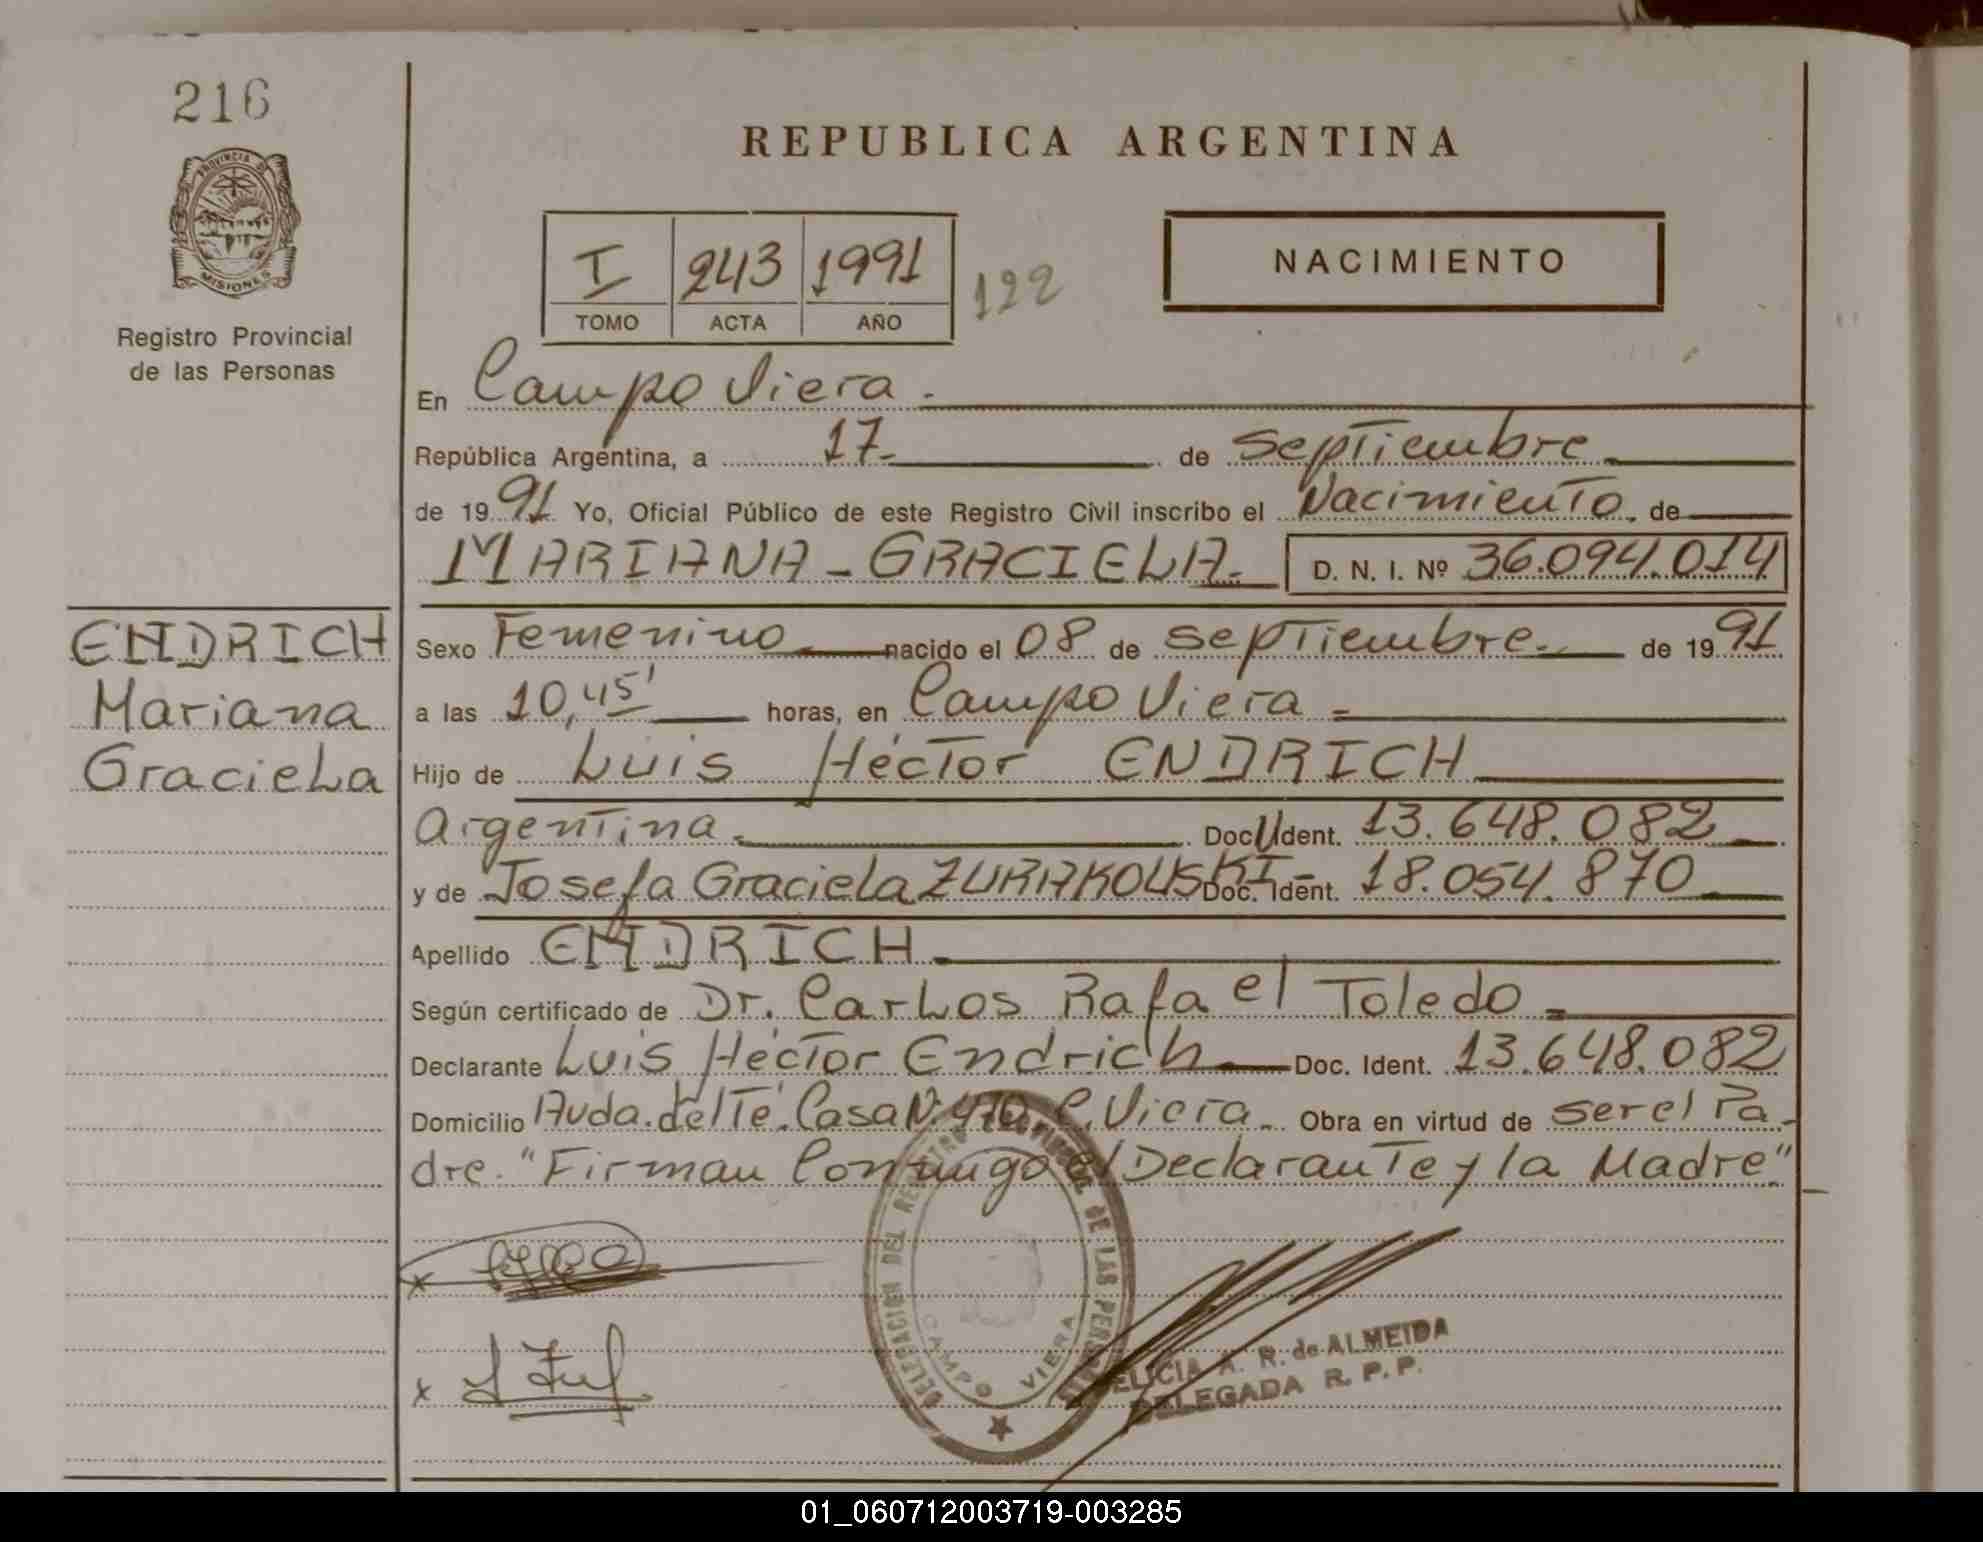 216
PROVINCIA DE
MISIONES
Registro Provincial
de las Personas
REPUBLICA ARGENTINA
I 243 1991 122
TOMO ACTA AÑO
NACIMIENTO
En Campo Viera.
República Argentina, a 17 de Septiembre
de 1991 Yo, Oficial Público de este Registro Civil inscribo el Nacimiento de
MARIANA - GRACIELA- D. N. I. Nº 36.094.014
ENDRICH
Mariana
Graciela
Sexo Femenino nacido el 08 de septiembre de 1991
a las 10,45' horas, en Campo Viera
Hijo de Luis Héctor ENDRICH
Argentina. Doc. Ident. 13.648.082
y de Josefa Graciela ZURAKOUSKI- Doc. Ident. 18.054.870
Apellido ENDRICH
Según certificado de Dr. Carlos Rafael Toledo
Declarante Luis Héctor Endrich Doc. Ident. 13.648.082
Domicilio Avda. del Té. Casa Nº 470 C. Viera Obra en virtud de ser el Pa-
dre. "Firman Conmigo el Declarante y la Madre"
x
x
DELEGACION DEL REGISTRO PROVINCIAL DE LAS PERSONAS
CAMPO VIERA
ELICIA A. R. de ALMEIDA
DELEGADA R. P. P.
01_060712003719-003285